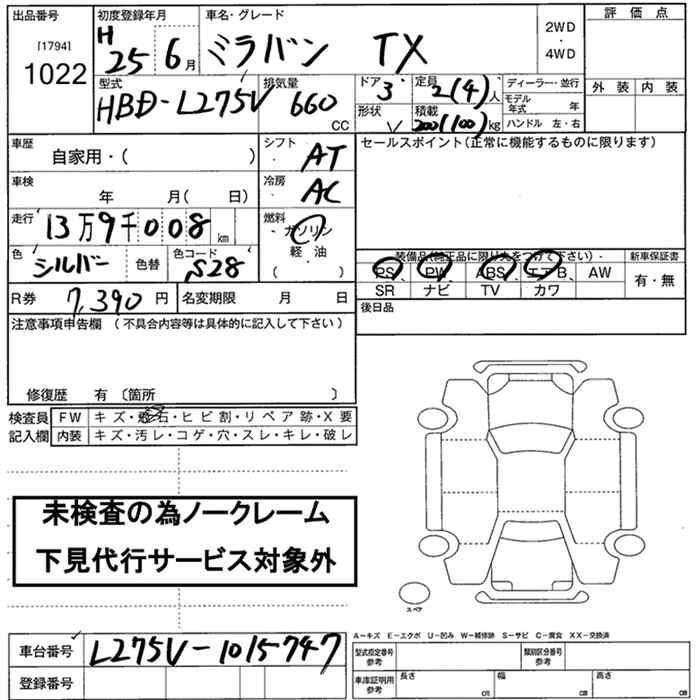 出品番号
[1794]
1022
初度登録年月
H 25 6 月
車名・グレード
ミラバン TX
2WD
・
4WD
評価点
外装 内装
型式
HBD-L275V
排気量
660
CC
ドア 3
形状 V
定員 2(4)人
積載 200(100)kg
ディーラー・並行
モデル年式 年
ハンドル 左・右
車歴
自家用・( )
シフト AT
車検 年 月( 日)
冷房 AC
走行 13万9千008 km
燃料 ガソリン
軽油
( )
色 シルバー 色替 色コード S28
セールスポイント(正常に機能するものに限ります)
装備品(純正品に限り丸をつけて下さい)
新車保証書
PS PW ABS エアB AW
有・無
SR ナビ TV カワ
R券 7,390 円 名変期限 月 日
後日品
注意事項申告欄 (不具合内容等は具体的に記入して下さい)
修復歴 有 〔箇所 〕
検査員 FW キズ・飛石・ヒビ割・リペア跡・X要
記入欄 内装 キズ・汚レ・コゲ・穴・スレ・キレ・破レ
未検査の為ノークレーム
下見代行サービス対象外
スペア
A-キズ E-エクボ U-凹み W-補修跡 S-サビ C-腐食 XX-交換済
車台番号 L275V-1015747
登録番号
型式指定番号
参考
類別区分番号
参考
車庫証明用
参考
長さ cm 幅 cm 高さ cm